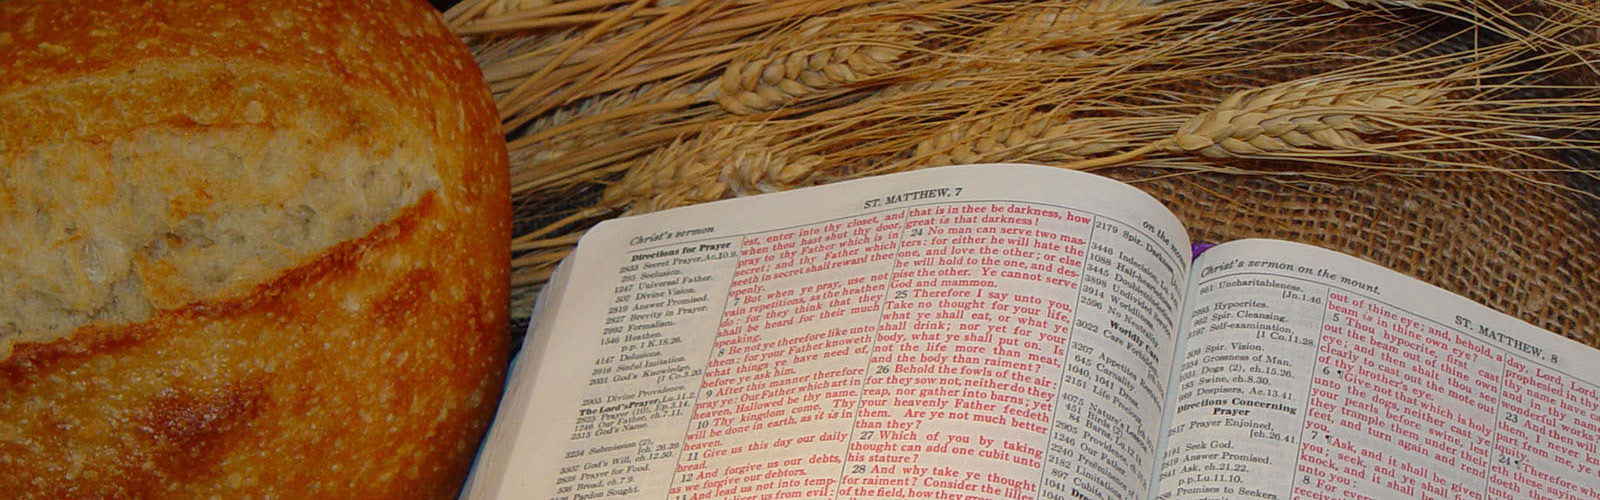 ST. MATTHEW, 7
Christ's sermon
on the
Directions for Prayer
2833 Secret Prayer, Ac.10.9.
295 Seclusion.
1247 Universal Father.
502 Divine Vision.
2819 Answer Promised.
2827 Brevity in Prayer.
2992 Formalism.
1546 Heathen.
p.p. 1 K.18.26.
4147 Delusions.
2916 Sinful Imitation.
2031 God's Knowledge.
2905 Divine Providence.
The Lord's Prayer, Lu.11.2.
1246 Our Father
2313 God's Name.
3234 Submission (2),
[ch. 26.39.
God's Will, ch.12.50.
Prayer for Food.
Bread, ch.7.9.
Pardon Sought.
est, enter into thy closet, and
when thou hast shut thy door,
pray to thy Father which is in
secret; and thy Father which
seeth in secret shall reward thee
openly.
7 But when ye pray, use not
vain repetitions, as the heathen
do: for they think that they
shall be heard for their much
speaking.
8 Be not ye therefore like unto
them: for your Father knoweth
what things ye have need of,
before ye ask him.
9 After this manner therefore
pray ye: Our Father which art in
heaven, Hallowed be thy name.
10 Thy kingdom come. Thy
will be done in earth, as it is in
heaven.
11 Give us this day our daily
bread.
12 And forgive us our debts,
as we forgive our debtors.
And lead us not into temp-
deliver us from evil:
that is in thee be darkness, how
great is that darkness!
24 No man can serve two mas-
ters: for either he will hate the
one, and love the other; or else
he will hold to the one, and des-
pise the other. Ye cannot serve
God and mammon.
25 Therefore I say unto you,
Take no thought for your life,
what ye shall eat, or what ye
shall drink; nor yet for your
body, what ye shall put on. Is
not the life more than meat,
and the body than raiment?
26 Behold the fowls of the air:
for they sow not, neither do they
reap, nor gather into barns; yet
your heavenly Father feedeth
them. Are ye not much better
than they?
27 Which of you by taking
thought can add one cubit unto
his stature?
28 And why take ye thought
for raiment? Consider the lilies
of the field, how they grow
2179 Spir. Darkness
3446 Indecision
1088 Half-hearted
3445 Doubleminded
3898 Undivided
3914 Worldliness
2596 No Neutrality
Worldly Care
3022 Care Forbidden
3207 Appetites
645 Carnality
1040, 1041 Dress
2151 Life Precious
4075 Nature's Lessons
451 Birds (2)
84 Barns, Lu.12.
2905 Providence
1246 Our Father
2182 Limitations
897 Cubits
1040
Christ's sermon on the mount.
ST. MATTHEW, 8
Uncharitableness.
[Jn.1.46.
Hypocrites.
962 Spir. Cleansing.
Self-examination,
[1 Co.11.28.
Spir. Vision.
Grossness of Man.
Dogs (2), ch.15.26.
Swine, ch.8.30.
Despisers, Ac.13.41.
Directions Concerning
Prayer
Prayer Enjoined,
[ch.26.41.
Seek God.
Answer Promised.
Ask, ch.21.22.
p.p.Lu.11.10.
Promises to Seekers,
out of thine eye; and, behold, a
beam is in thine own eye?
5 Thou hypocrite, first cast
out the beam out of thine own
eye; and then shalt thou see
clearly to cast out the mote out
of thy brother's eye.
6 ¶Give not that which is holy
unto the dogs, neither cast ye
your pearls before swine, lest
they trample them under their
feet, and turn again and rend
you.
7 ¶Ask, and it shall be given
you; seek, and ye shall find;
knock, and it shall be
unto you:
8 For every
day, Lord, Lord,
prophesied in thy
in thy name have
and in thy
wonderful works?
23 And then will
them, I never
part from me, ye
24 ¶
Therefore
these sayings
doeth